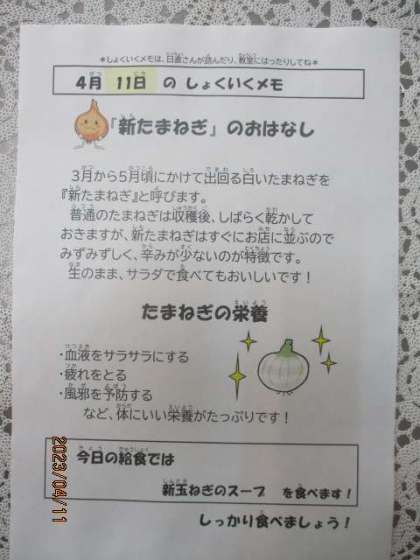 ＊しょくいくメモは、日直さんが読んだり、教室にはったりしてね＊
4月 11日 の しょくいくメモ
「新たまねぎ」のおはなし
3月から5月頃にかけて出回る白いたまねぎを
『新たまねぎ』と呼びます。
普通のたまねぎは収穫後、しばらく乾かして
おきますが、新たまねぎはすぐにお店に並ぶので
みずみずしく、辛みが少ないのが特徴です。
生のまま、サラダで食べてもおいしいです！
たまねぎの栄養
・血液をサラサラにする
・疲れをとる
・風邪を予防する
など、体にいい栄養がたっぷりです！
今日の給食では
新玉ねぎのスープ を食べます！
しっかり食べましょう！
2023/04/11